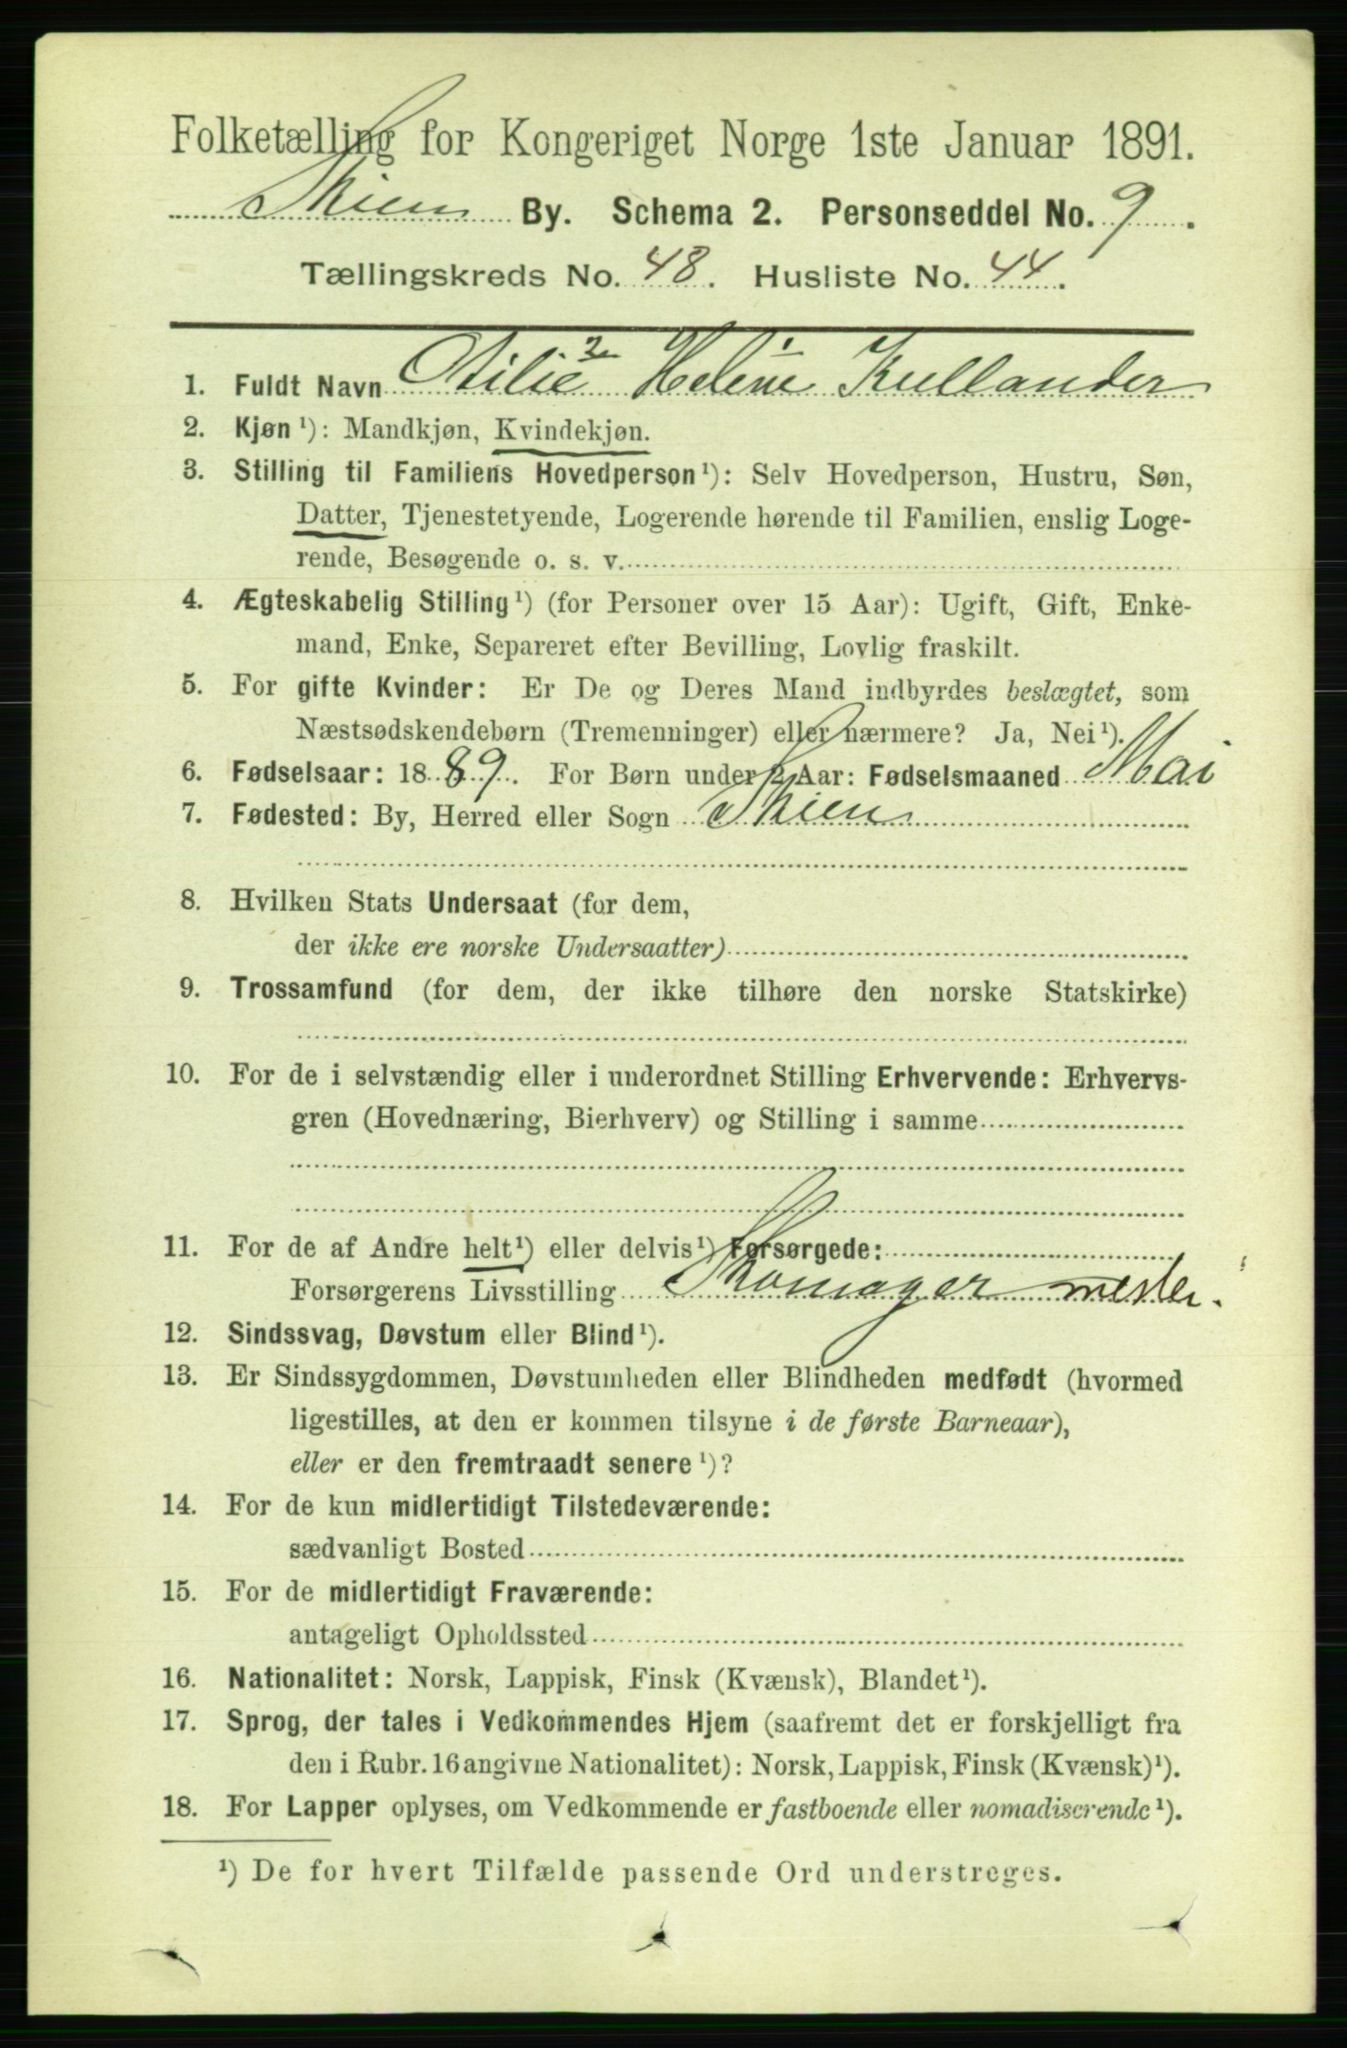 Folketælling for Kongeriget Norge 1ste Januar 1891.
Skien By. Schema 2. Personseddel No. 9.
Tællingskreds No. 48. Husliste No. 44.
1. Fuldt Navn Otilie Helene Kullander
2. Kjøn ¹): Mandkjøn, Kvindekjøn.
3. Stilling til Familiens Hovedperson ¹): Selv Hovedperson, Hustru, Søn,
Datter, Tjenestetyende, Logerende hørende til Familien, enslig Loge-
rende, Besøgende o. s. v.
4. Ægteskabelig Stilling ¹) (for Personer over 15 Aar): Ugift, Gift, Enke-
mand, Enke, Separeret efter Bevilling, Lovlig fraskilt.
5. For gifte Kvinder: Er De og Deres Mand indbyrdes beslægtet, som
Næstsødskendebørn (Tremenninger) eller nærmere? Ja, Nei ¹).
6. Fødselsaar: 1889. For Børn under 2 Aar: Fødselsmaaned Mai
7. Fødested: By, Herred eller Sogn Skien
8. Hvilken Stats Undersaat (for dem,
der ikke ere norske Undersaatter)
9. Trossamfund (for dem, der ikke tilhøre den norske Statskirke)
10. For de i selvstændig eller i underordnet Stilling Erhvervende: Erhvervs-
gren (Hovednæring, Bierhverv) og Stilling i samme
11. For de af Andre helt ¹) eller delvis ¹) Forsørgede:
Forsørgerens Livsstilling Skomagermester.
12. Sindssvag, Døvstum eller Blind ¹).
13. Er Sindssygdommen, Døvstumheden eller Blindheden medfødt (hvormed
ligestilles, at den er kommen tilsyne i de første Barneaar),
eller er den fremtraadt senere ¹)?
14. For de kun midlertidigt Tilstedeværende:
sædvanligt Bosted
15. For de midlertidigt Fraværende:
antageligt Opholdssted
16. Nationalitet: Norsk, Lappisk, Finsk (Kvænsk), Blandet ¹).
17. Sprog, der tales i Vedkommendes Hjem (saafremt det er forskjelligt fra
den i Rubr. 16 angivne Nationalitet): Norsk, Lappisk, Finsk (Kvænsk) ¹).
18. For Lapper oplyses, om Vedkommende er fastboende eller nomadiserende ¹).
¹) De for hvert Tilfælde passende Ord understreges.